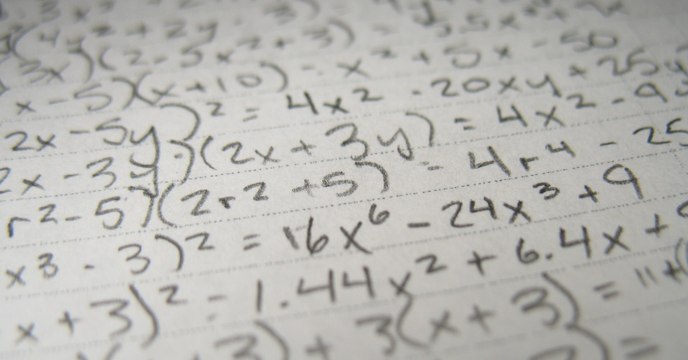 (4y² + 2y - 3)
3x)(2 - 5x² + 3)
x - 5)(x + 10) = x² + 5x - 50
2x - 5y)² = 4x² - 20xy + 25y
2x - 3y)(2x + 3y) = 4x² - 9y
r² - 5)(2r² + 5) = 4r⁴ - 25
x³ - 3)² = 16x⁶ - 24x³ + 9
x + 3)² = 1.44x² + 6.4x + 9
3) + 3(x + 3) = 11 + (